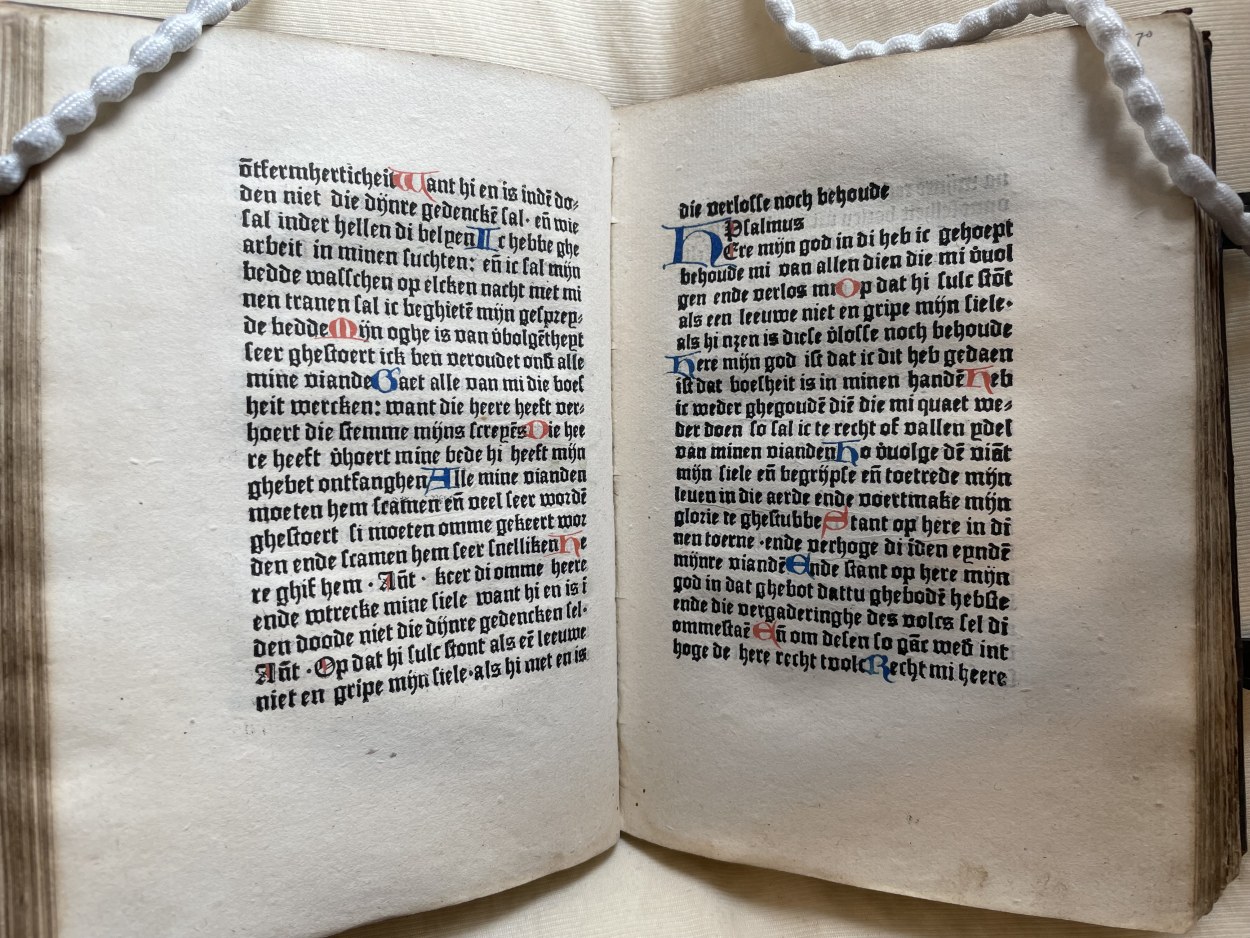 ōtfermherticheit Want hi en is indē do⸗
den niet die dijnre gedenckē sal· en̄ wie
sal inder hellen di belyen Ic hebbe ghe
arbeit in minen suchten: en̄ ic sal mijn
bedde wasschen op elcken nacht met mi
nen tranen sal ic beghietē mijn gesprey⸗
de bedde Mijn oghe is van v̄bolgētheyt
seer ghestoert ick ben veroudet ond̄ alle
mine viande Gaet alle van mi die boes
heit wercken: want die heere heeft ver⸗
hoert die stemme mijns screyēs Die hee
re heeft v̄hoert mine bede hi heeft mijn
ghebet ontfanghen Alle mine vianden
moeten hem scamen en̄ veel seer wordē
ghestoert si moeten omme gekeert wor
den ende scamen hem seer snelliken He
re ghif hem · An̄t · keer di omme heere
ende wtrecke mine siele want hi en is ī
den doode niet die dijnre gedencken sel·
An̄t · Op dat hi sulc stont als eē leeuwe
niet en gripe mijn siele·als hi niet en is
70
die verlosse noch behoude
Psalmus
HEre mijn god in di heb ic gehoept
behoude mi van allen dien die mi v̄uol
gen ende verlos mi Op dat hi sulc stōt
als een leeuwe niet en gripe mijn siele·
als hi nyen is diese v̄losse noch behoude
Here mijn god ist dat ic dit heb gedaen
ist dat boesheit is in minen handē Heb
ic weder ghegoudē diē die mi quaet we⸗
der doen so sal ic te recht of vallen ydel
van minen vianden So v̄uolge dē viāt
mijn siele en̄ begrijpse en̄ toetrede mijn
leuen in die aerde ende voertmake mijn
glorie te ghestubbe Stant op here in di
nen toerne ·ende verhoge di īden eyndē
mijnre viandē Ende stant op here mijn
god in dat ghebot dattu ghebodē hebste
ende die vergaderinghe des volcs sel di
ommestaē En̄ om desen so gāc wed̄ int
hoge de here recht tvolc Recht mi heere